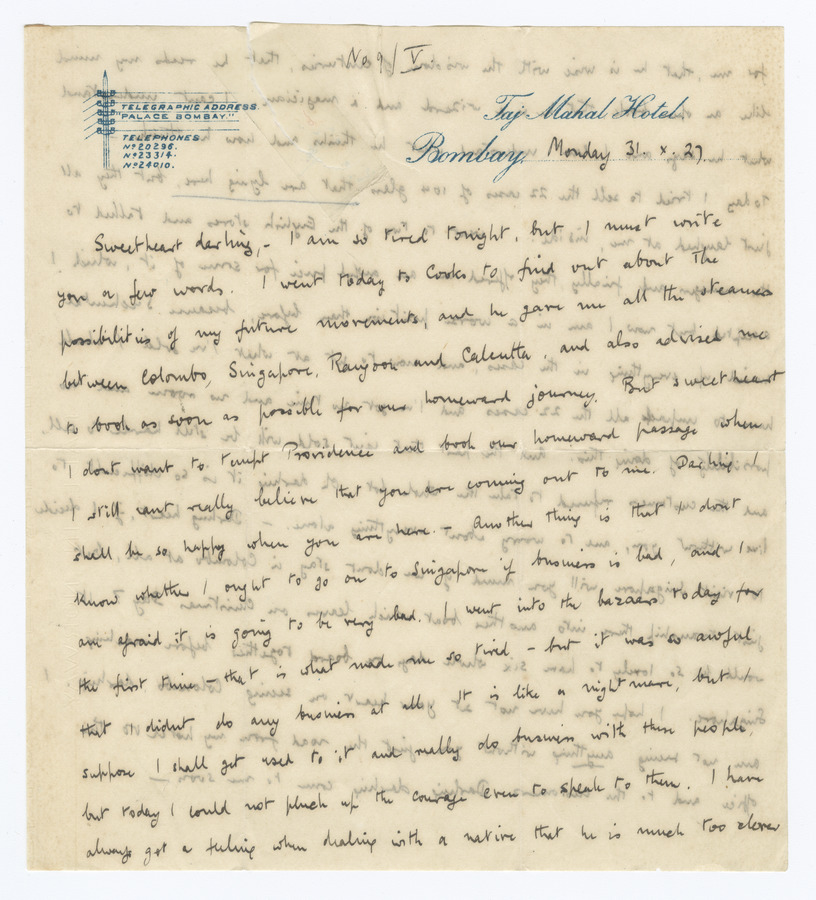 No 9/V
TELEGRAPHIC ADDRESS
"PALACE BOMBAY."
TELEPHONES
No 20296.
No 23314.
No 24010.
Taj Mahal Hotel
Bombay, Monday 31. X. 27.
Sweetheart darling,- I am so tired tonight, but I must write
you a few words. I went today to Cooks to find out about the
possibilities of my future movements, and he gave me all the steamers
between Colombo, Singapore, Rangoon and Calcutta, and also advised me
to book as soon as possible for our homeward journey. But sweetheart
I dont want to tempt Providence and book our homeward passage when
I still cant really believe that you are coming out to me. Darling I
shall be so happy when you are here. - Another thing is that I dont
know whether I ought to go on to Singapore if business is bad, and I
am afraid it is going to be very bad. I went into the bazaars today for
the first time - that is what made me so tired - but it was so awful
that I didnt do any business at all. It is like a nightmare, but I
suppose I shall get used to it and really do business with these people,
but today I could not pluck up the courage even to speak to them. I have
always got a feeling when dealing with a native that he is much too clever